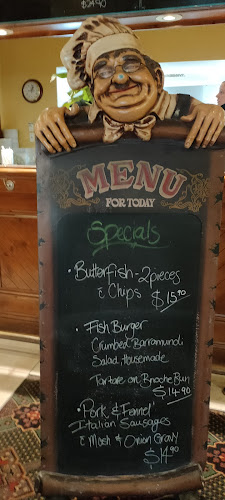 $24.90
MENU
FOR TODAY
Specials
• Butterfish - 2 pieces
& Chips $15.90
• Fish Burger
Crumbed Barramundi
Salad, Housemade
Tartare on Brioche Bun
$14.90
• Pork & Fennel
Italian Sausages
& Mash & Onion Gravy
$14.90